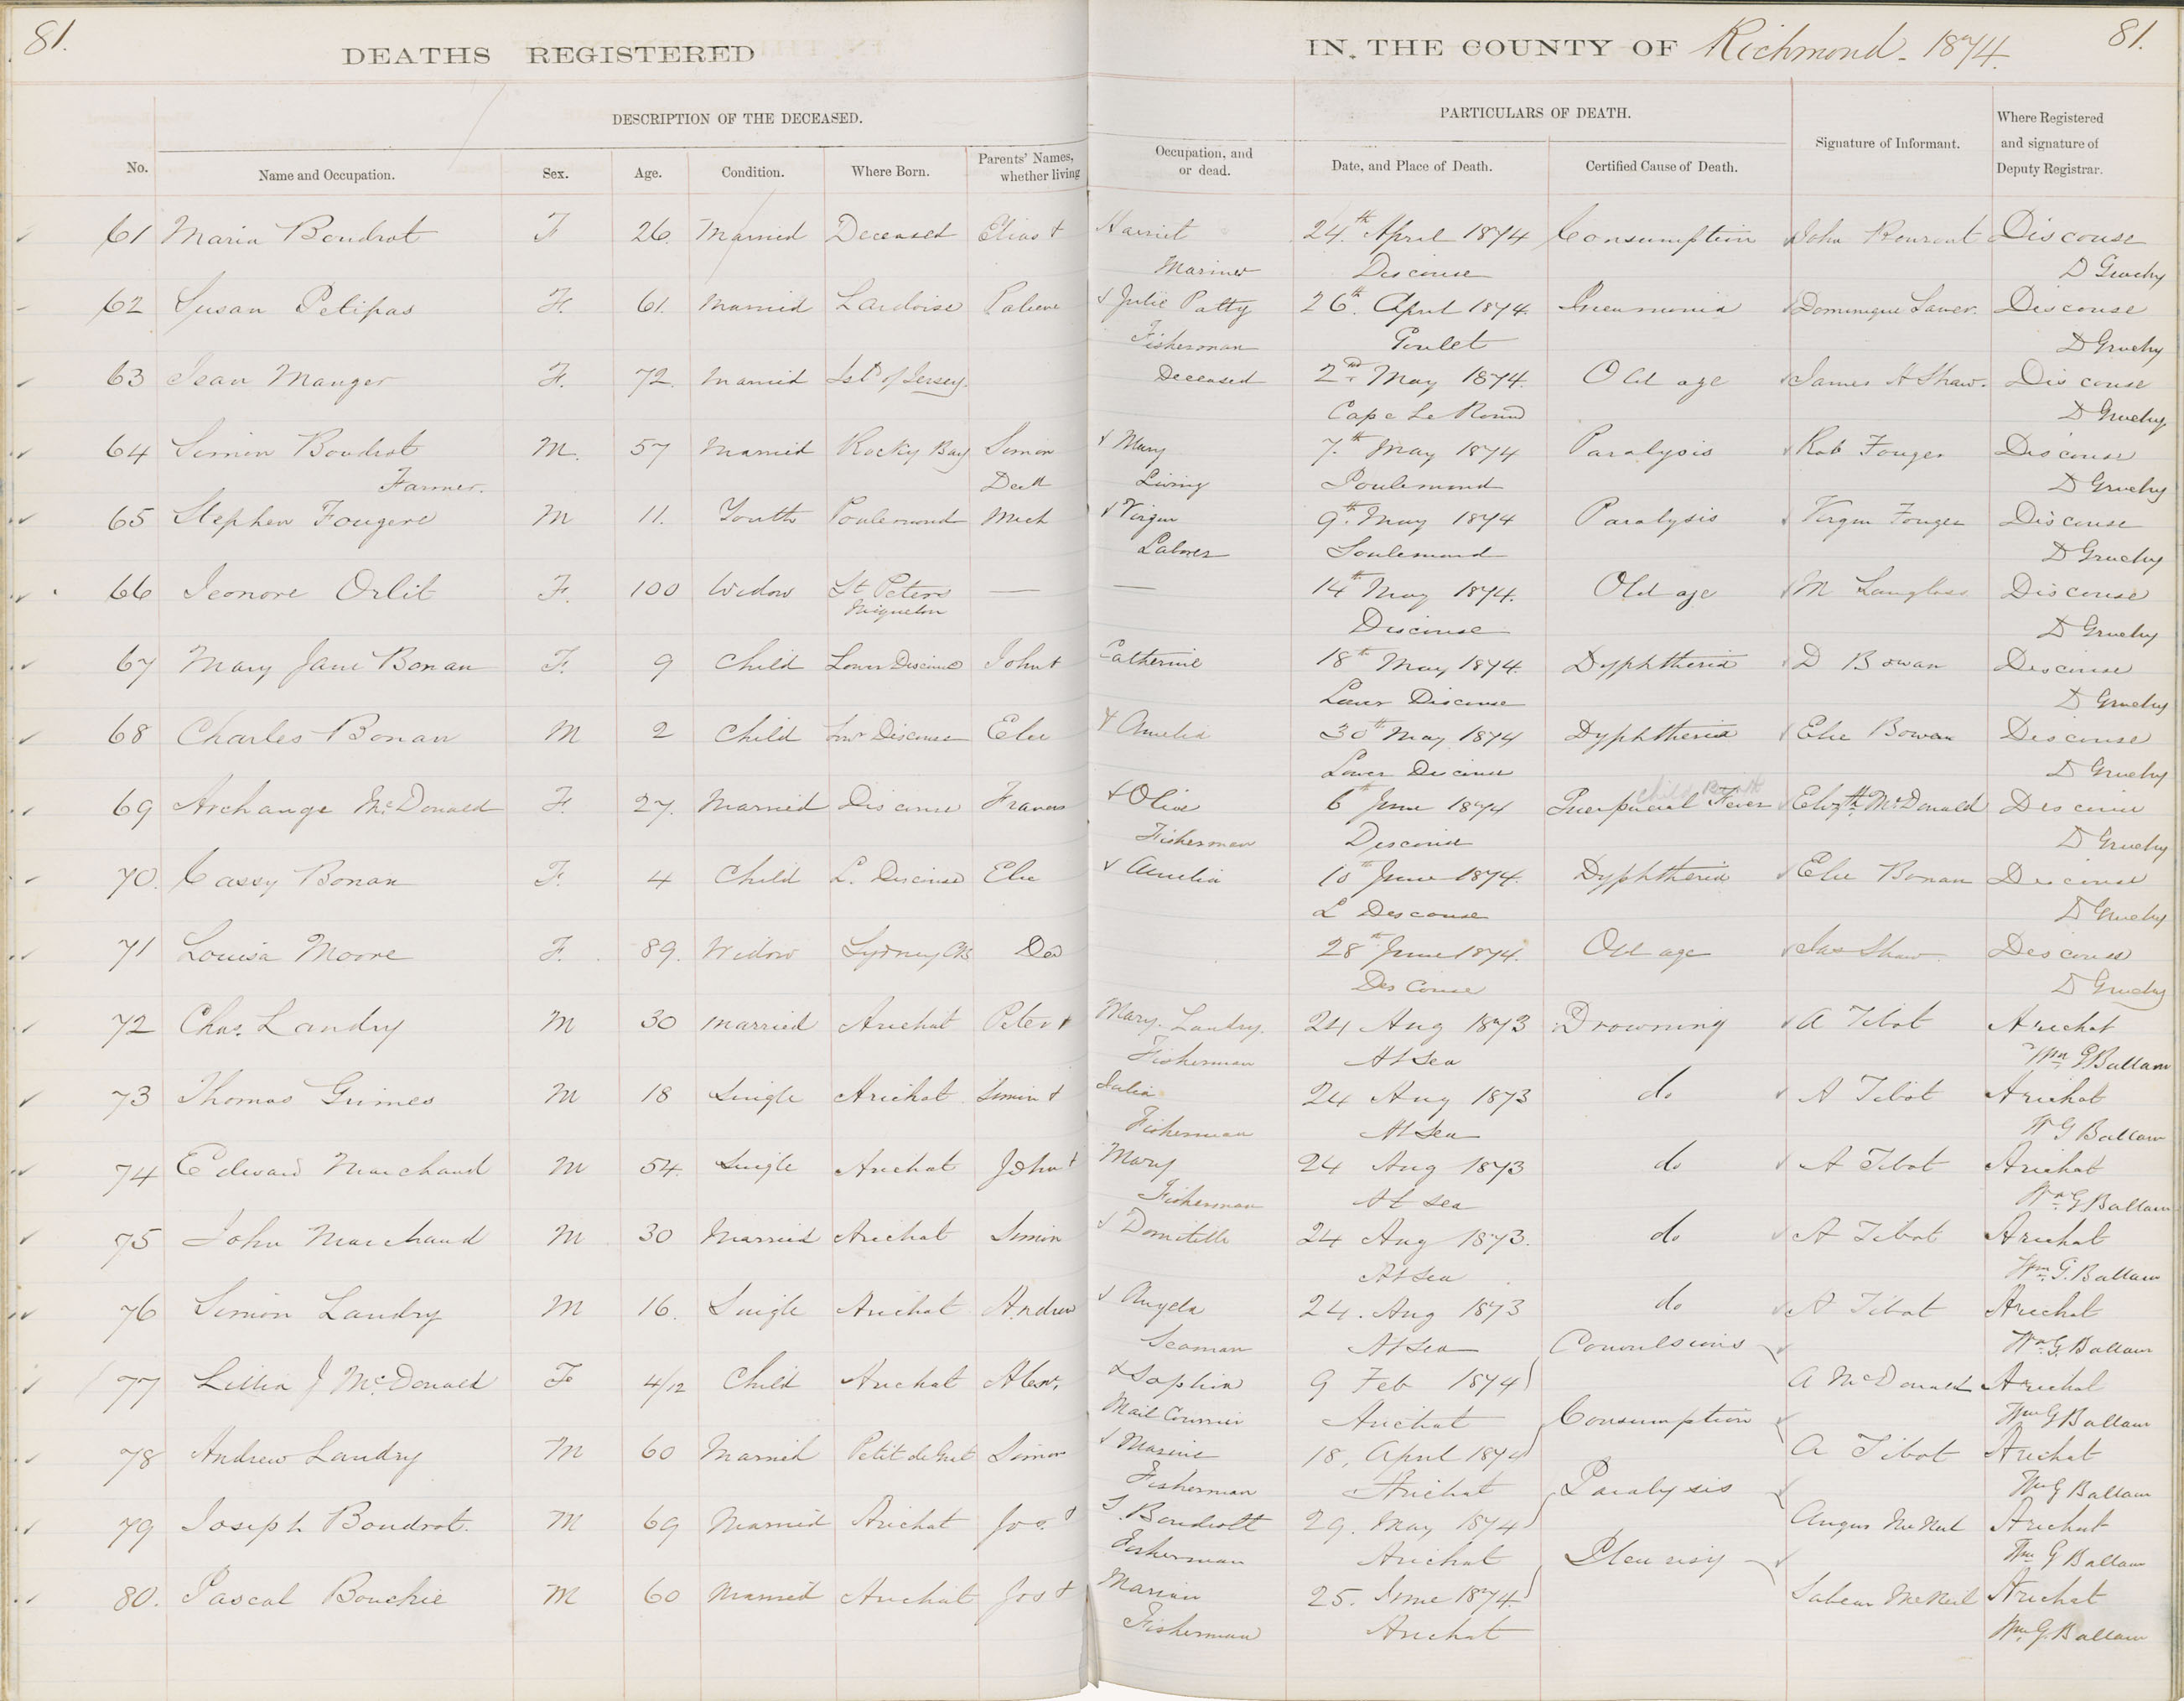 81.
DEATHS REGISTERED
IN THE COUNTY OF Richmond - 1874.
81.
DESCRIPTION OF THE DECEASED.
PARTICULARS OF DEATH.
No.
Name and Occupation.
Sex.
Age.
Condition.
Where Born.
Parents' Names, whether living
Occupation, and or dead.
Date, and Place of Death.
Certified Cause of Death.
Signature of Informant.
Where Registered and signature of Deputy Registrar.
61 Maria Boudrot F 26. Married Deceased Elias + Harriet 24th April 1874 Consumption John Discouse
Mariner Discouse D Gruchy
62 Susan Petipas F. 61. Married Lardoise & Julie Patty 26th. April 1874. Pneumonia Dominique Discouse
Fisherman Poulet D Gruchy
63 Jean Manger F. 72. Married Isld of Jersey. Deceased 2nd. May 1874. Old age James H Shaw. Discouse
Cape Le Round D Gruchy
64 Simon Boudrot M. 57 Married Rocky Bay Simon & Mary 7.th May 1874 Paralysis Rob Fouger Discouse
Farmer. Dead Living Poulemond D Gruchy
65 Stephen Fougere M 11. Youth Poulemond Mich & Virgin 9th. May 1874 Paralysis Virgin Fouger Discouse
Laborer Poulemond D Gruchy
66 Jeonore Orlit F. 100 Widow St Peters — — 14th May 1874. Old age M Langlois Discouse
Miquelon Discouse D Gruchy
67 Mary Jane Bonan F. 9 Child Lower Discouse John + Catherine 18th May 1874. Dyphtheria D Bowan Discouse
Lower Discouse D Gruchy
68 Charles Bonan M 2 Child Lowr Discouse Elie & Amelia 30th May 1874 Dyphtheria Elie Bowan Discouse
Lower Discouse D Gruchy
69 Archange McDonald F. 27. Married Discouse Francis & Olive 6th June 1874 Puerpueral Fever Elizth McDonald Discouse
child Birth
Fisherman Discouse D Gruchy
70. Cassy Bonan F. 4 Child L. Discouse Elie & Amelia 10th June 1874. Dyphtheria Elie Bonan Discouse
L Descouse D Gruchy
71 Louisa Moore F. 89. Widow Sydney CB Ded 28th June 1874. Old age Jas Shaw Descouse
Des Couse D Gruchy
72 Chas. Landry M 30 married Arichat Peter & Mary Landry. 24 Aug 1873 Drowning A Tibot Arichat
Fisherman At Sea Wm G Ballam
73 Thomas Grimes M 18 Single Arichat Simin & Julia 24 Aug 1873 do A Tibot Arichat
Fisherman At Sea W G Ballam
74 Edward Marchand M 54. Single Arichat John + Mary 24 Aug 1873 do A Tibot Arichat
Fisherman At sea Wm G Ballam
75 John Marchand M 30 Married Arichat Simon & Domitille 24 Aug 1873. do A Tibot Arichat
At Sea Wm G. Ballam
76 Simon Landry M 16. Single Arichat Andrew & Angela 24. Aug 1873 do A Tibot Arichat
Seaman At Sea Convulsions Wm G. Ballam
77 Lillia J McDonald F 4/12 Child Arichat Alexr. & Sophia 9 Feb 1874 A McDonald Arichat
Mail Courier Arichat Consumption Wm G Ballam
78 Andrew Landry M 60 Married Petit de Grat Simon & Marine 18, April 1874 A Tibot Arichat
Fisherman Arichat Paralysis Wm G Ballam
79 Joseph Boudrot. M 69 Married Arichat Jos. & S. Boudrott 29. May 1874 Angus McNeil Arichat
Fisherman Arichat Pleurisy Wm G Ballam
80. Pascal Bouchie M 60 Married Arichat Jos + Marian 25. June 1874. McNeil Arichat
Fisherman Arichat Wm G Ballam